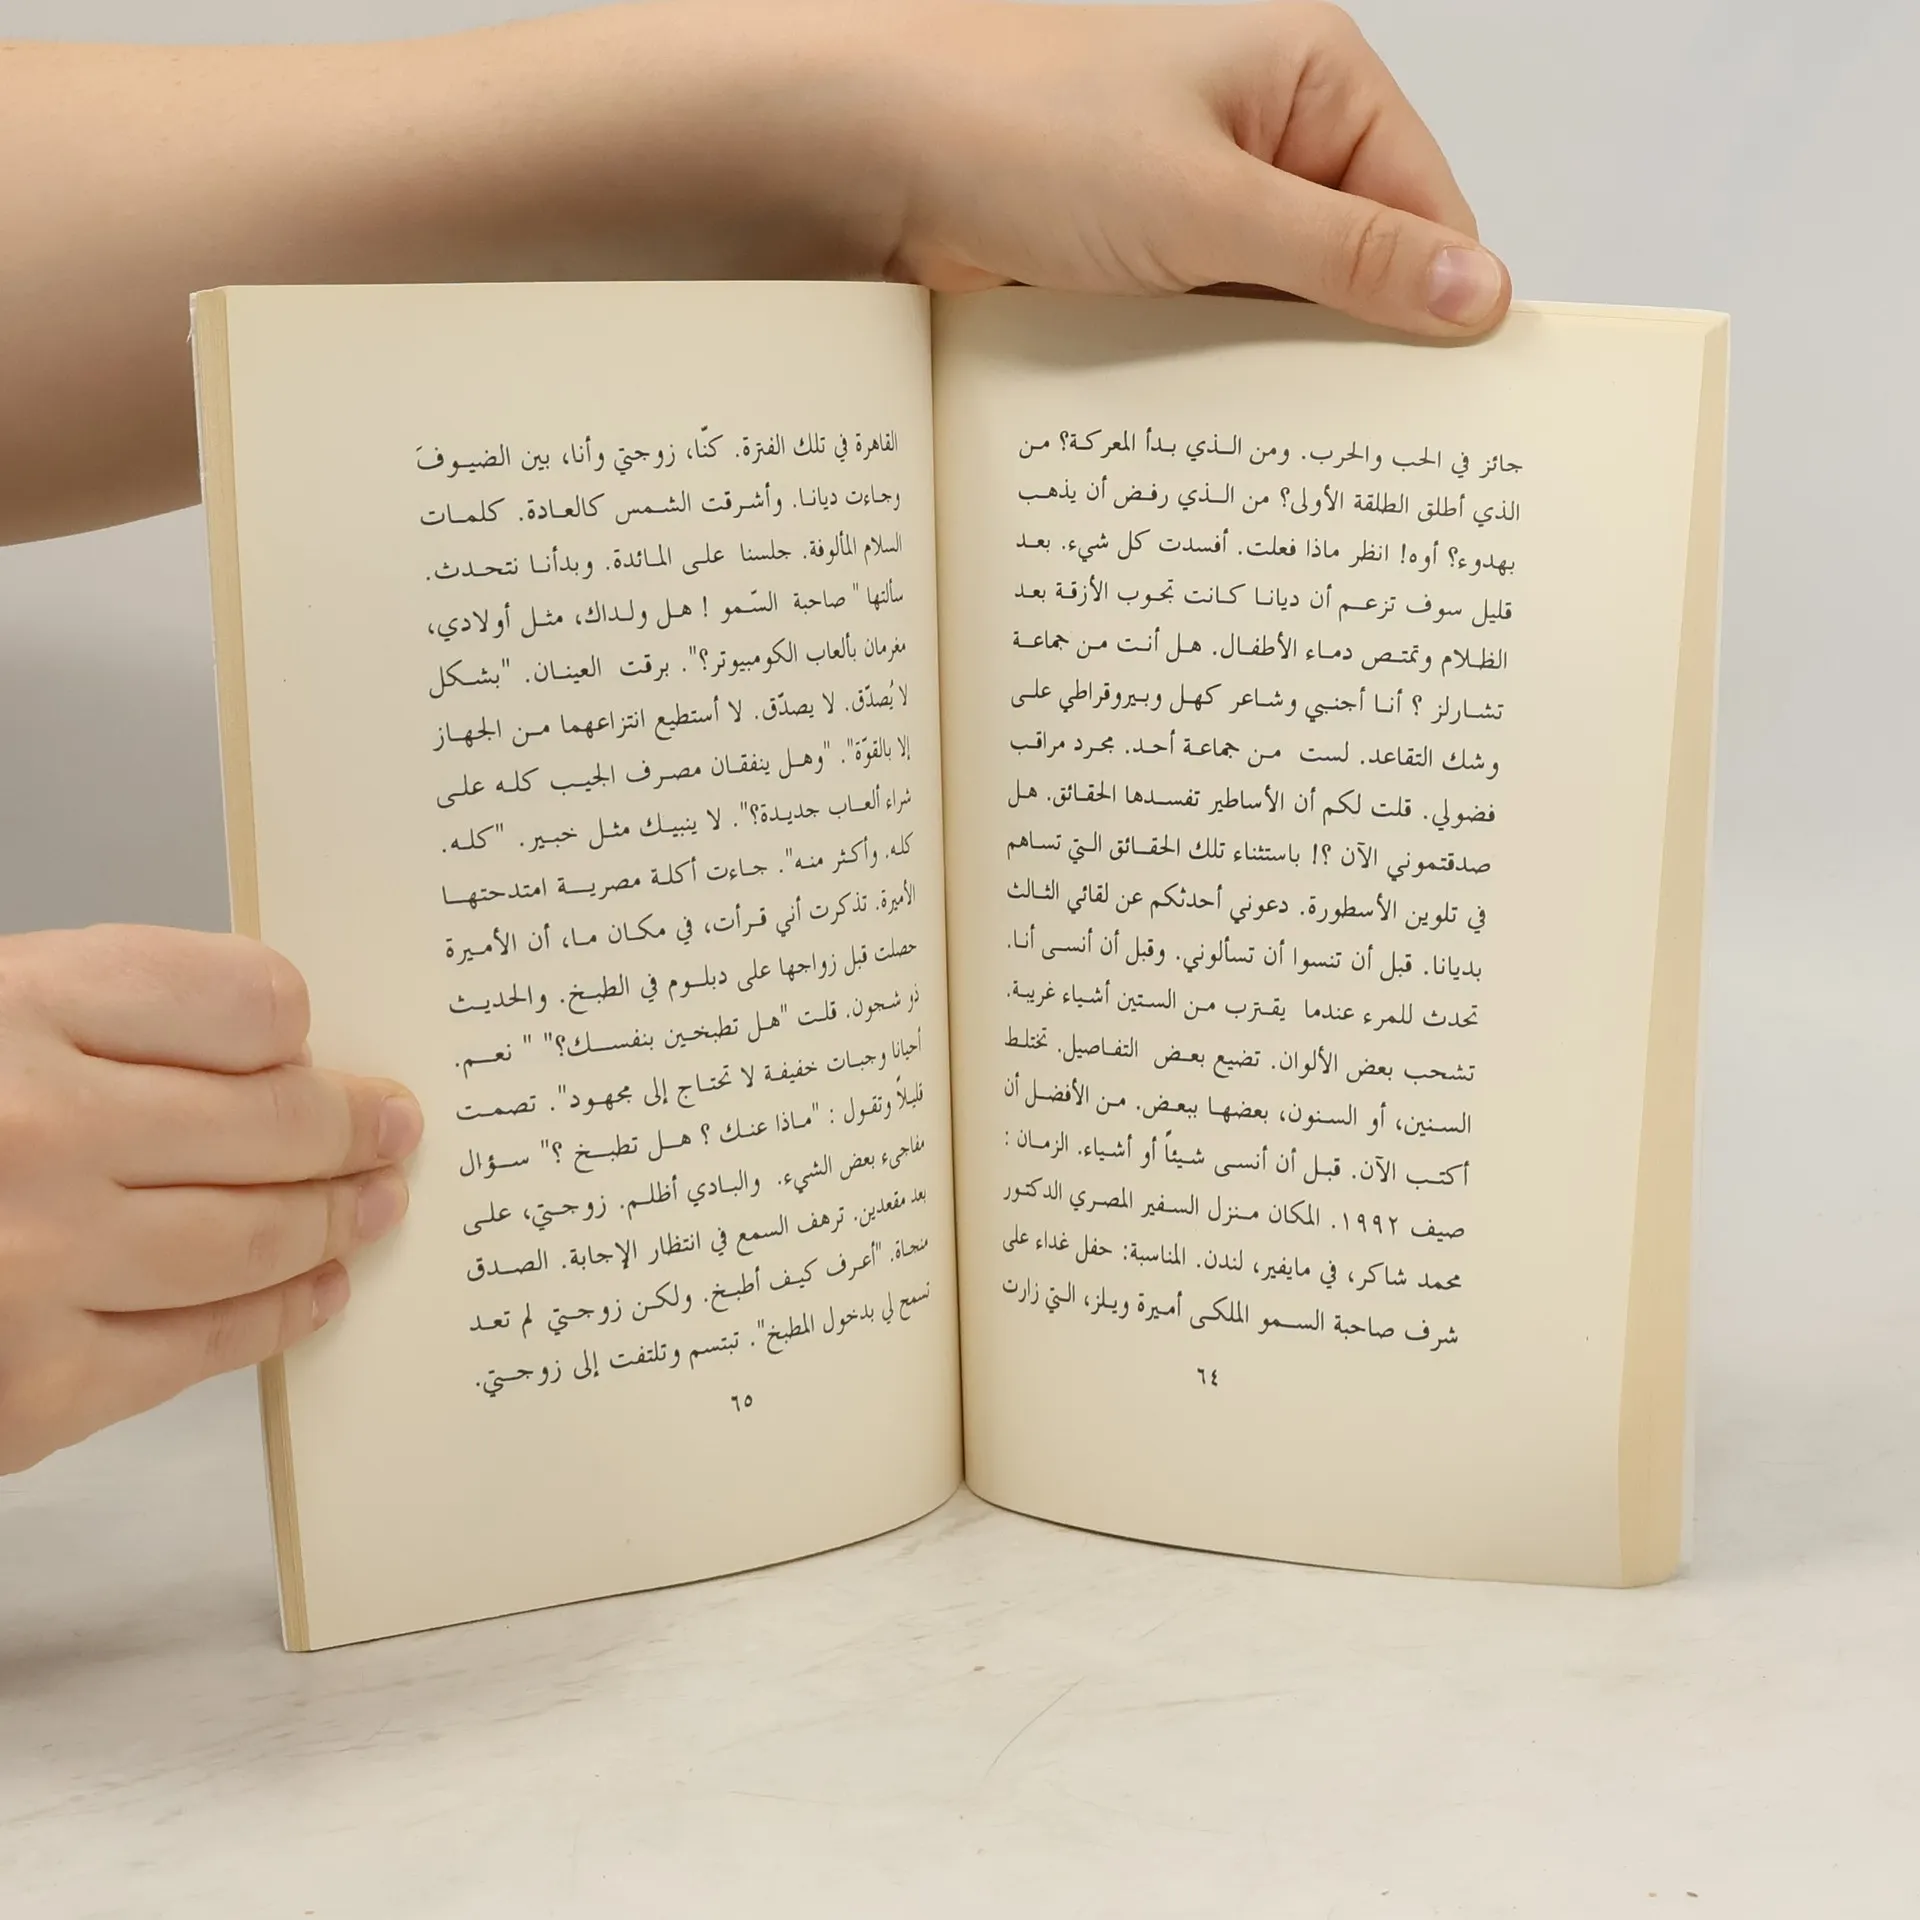 جائز في الحب والحرب. ومن الذي بدأ المعركة؟ من
الذي أطلق الطلقة الأولى؟ من الذي رفض أن يذهب
بهدوء؟ أوه! انظر ماذا فعلت. أفسدت كل شيء. بعد
قليل سوف تزعم أن ديانا كانت تجوب الأزقة بعد
الظلام وتمتص دماء الأطفال. هل أنت من جماعة
تشارلز ؟ أنا أجنبي وشاعر كهل وبيروقراطي على
وشك التقاعد. لست من جماعة أحد. مجرد مراقب
فضولي. قلت لكم أن الأساطير تفسدها الحقائق. هل
صدقتموني الآن ؟! باستثناء تلك الحقائق التي تساهم
في تلوين الأسطورة. دعوني أحدثكم عن لقائي الثالث
بديانا. قبل أن تنسوا أن تسألوني. وقبل أن أنسى أنا.
تحدث للمرء عندما يقترب من الستين أشياء غريبة.
تشحب بعض الألوان. تضيع بعض التفاصيل. تختلط
السنين، أو السنون، بعضها ببعض. من الأفضل أن
أكتب الآن. قبل أن أنسى شيئاً أو أشياء. الزمان :
صيف ١٩٩٢. المكان منزل السفير المصري الدكتور
محمد شاكر، في مايفير، لندن. المناسبة: حفل غداء على
شرف صاحبة السمو الملكى أميرة ويلز، التي زارت
٦٤
القاهرة في تلك الفترة. كنّا، زوجتي وأنا، بين الضيوفَ
وجاءت ديانا. وأشرقت الشمس كالعادة. كلمات
السلام المألوفة. جلسنا على المائدة. وبدأنا نتحدث.
سألتها " صاحبة السّمو ! هل ولداك، مثل أولادي،
مغرمان بألعاب الكومبيوتر؟". برقت العينان. "بشكل
لا يُصدّق. لا يصدّق. لا أستطيع انتزاعهما من الجهاز
إلا بالقوّة". "وهل ينفقان مصرف الجيب كله على
شراء ألعاب جديدة؟". لا ينبيك مثل خبير. "كله.
كله. وأكثر منه". جاءت أكلة مصرية امتدحتها
الأميرة. تذكرت أني قرأت، في مكان ما، أن الأميرة
حصلت قبل زواجها على دبلوم في الطبخ. والحديث
ذو شجون. قلت "هل تطبخين بنفسك؟" " نعم.
أحيانا وجبات خفيفة لا تحتاج إلى مجهود". تصمت
قليلاً وتقول : "ماذا عنك ؟ هل تطبخ ؟" سؤال
مفاجىء بعض الشيء. والبادي أظلم. زوجتي، على
بعد مقعدين. ترهف السمع في انتظار الإجابة. الصدق
منجاة. "أعرف كيف أطبخ. ولكن زوجتي لم تعد
تسمح لي بدخول المطبخ". تبتسم وتلتفت إلى زوجتي.
٦٥